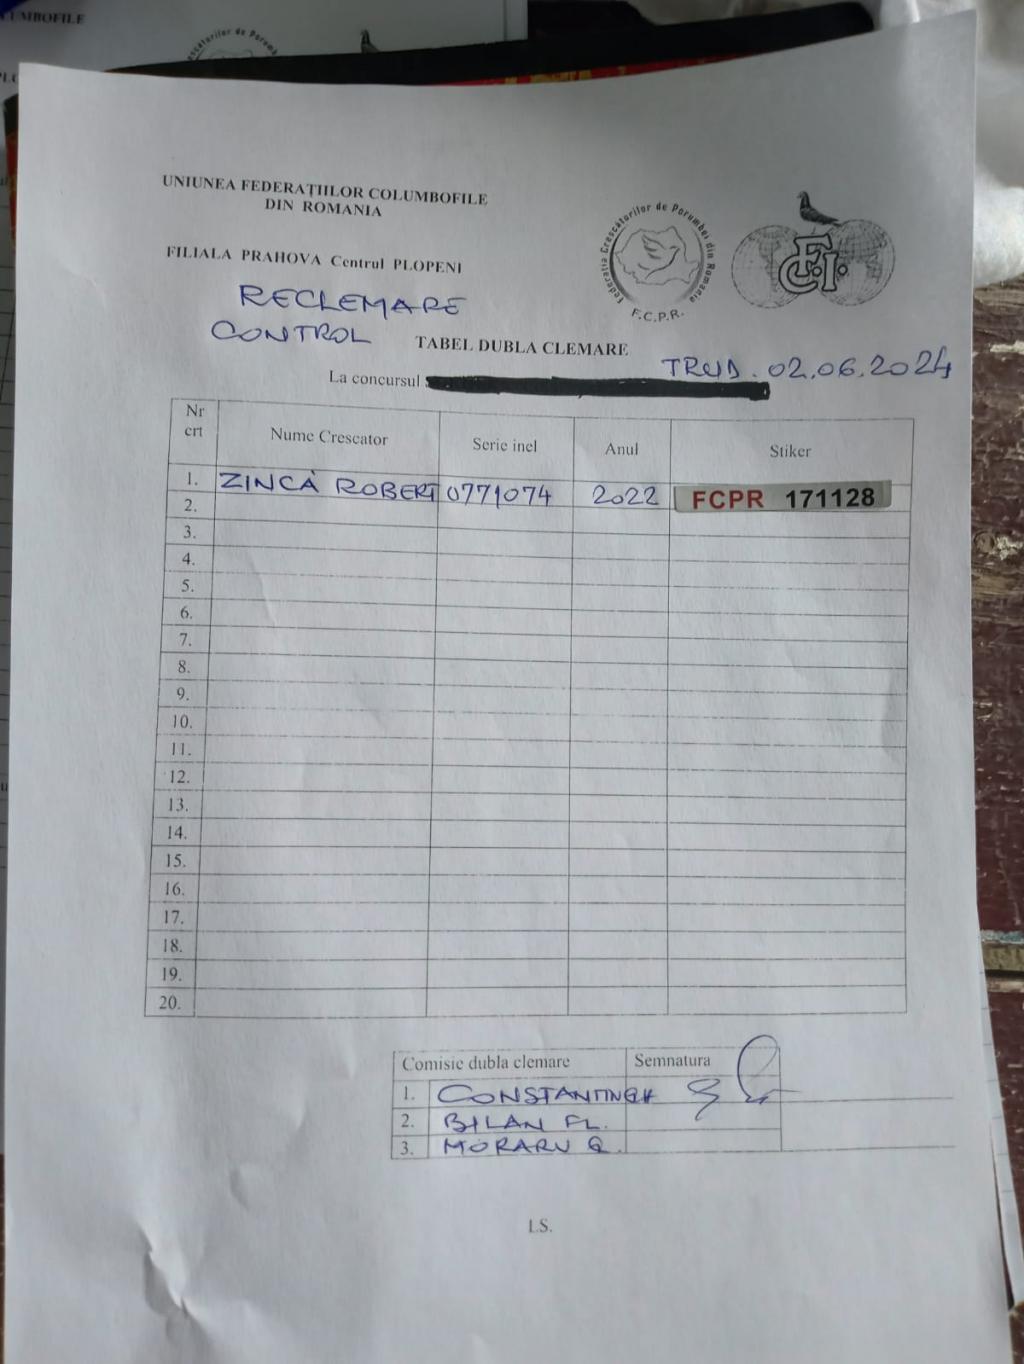 UMBOFILE
Crescătorilor de Porumbei
UNIUNEA FEDERAȚIILOR COLUMBOFILE
DIN ROMANIA
Federatia Crescătorilor de Porumbei din Romania
F.C.P.R.
F.C.I.
FILIALA PRAHOVA Centrul PLOPENI
RECLEMARE
CONTROL
TABEL DUBLA CLEMARE
La concursul TRUD. 02.06.2024
Nr crt Nume Crescator Serie inel Anul Stiker
1. ZINCĂ ROBERT 0771074 2022 FCPR 171128
2.
3.
4.
5.
6.
7.
8.
9.
10.
11.
12.
13.
14.
15.
16.
17.
18.
19.
20.
Comisie dubla clemare Semnatura
1.
2. BILAN FL.
3. MORARU G.